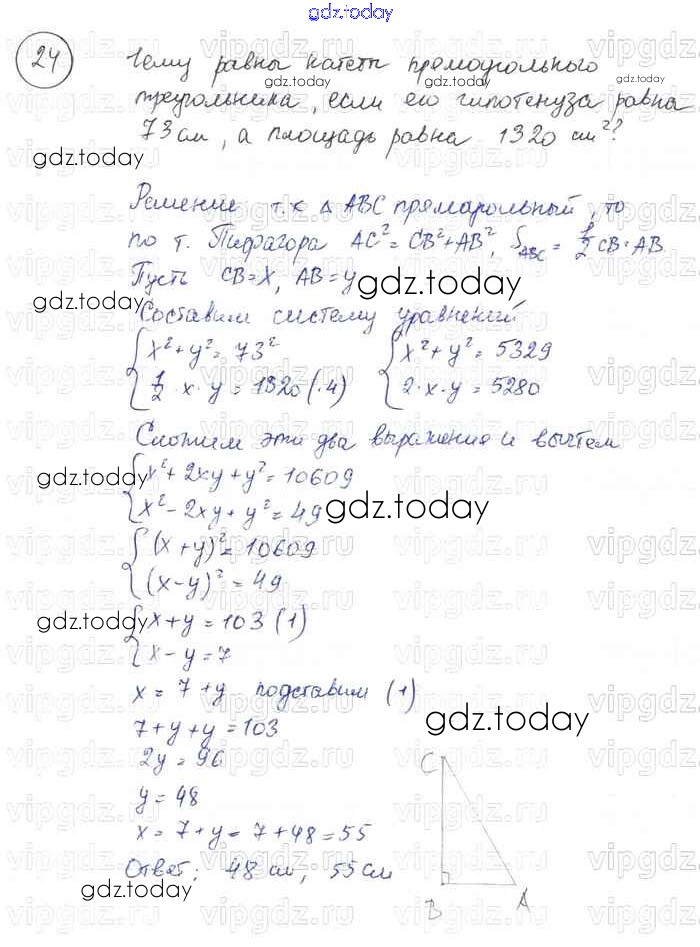 gdz.today
24 Чему равны катеты прямоугольного
треугольника, если его гипотенуза равна
73 см, а площадь равна 1320 см²?
gdz.today
gdz.today
gdz.today
Решение т.к △ ABC прямоугольный, то
по т. Пифагора AC² = CB² + AB², S_ABC = 1/2 CB · AB
Пусть CB = x, AB = y
gdz.today
Составим систему уравнений
{ x² + y² = 73² { x² + y² = 5329
1/2 · x · y = 1320 (·4) 2 · x · y = 5280
Сложим эти два выражения и вычтем
gdz.today
{ x² + 2xy + y² = 10609
x² - 2xy + y² = 49
gdz.today
{ (x + y)² = 10609
(x - y)² = 49
gdz.today
{ x + y = 103 (1)
x - y = 7
x = 7 + y подставим (1)
gdz.today
7 + y + y = 103
2y = 96
y = 48
x = 7 + y = 7 + 48 = 55
Ответ: 48 см, 55 см
gdz.today
C
B A
vipgdz.ru